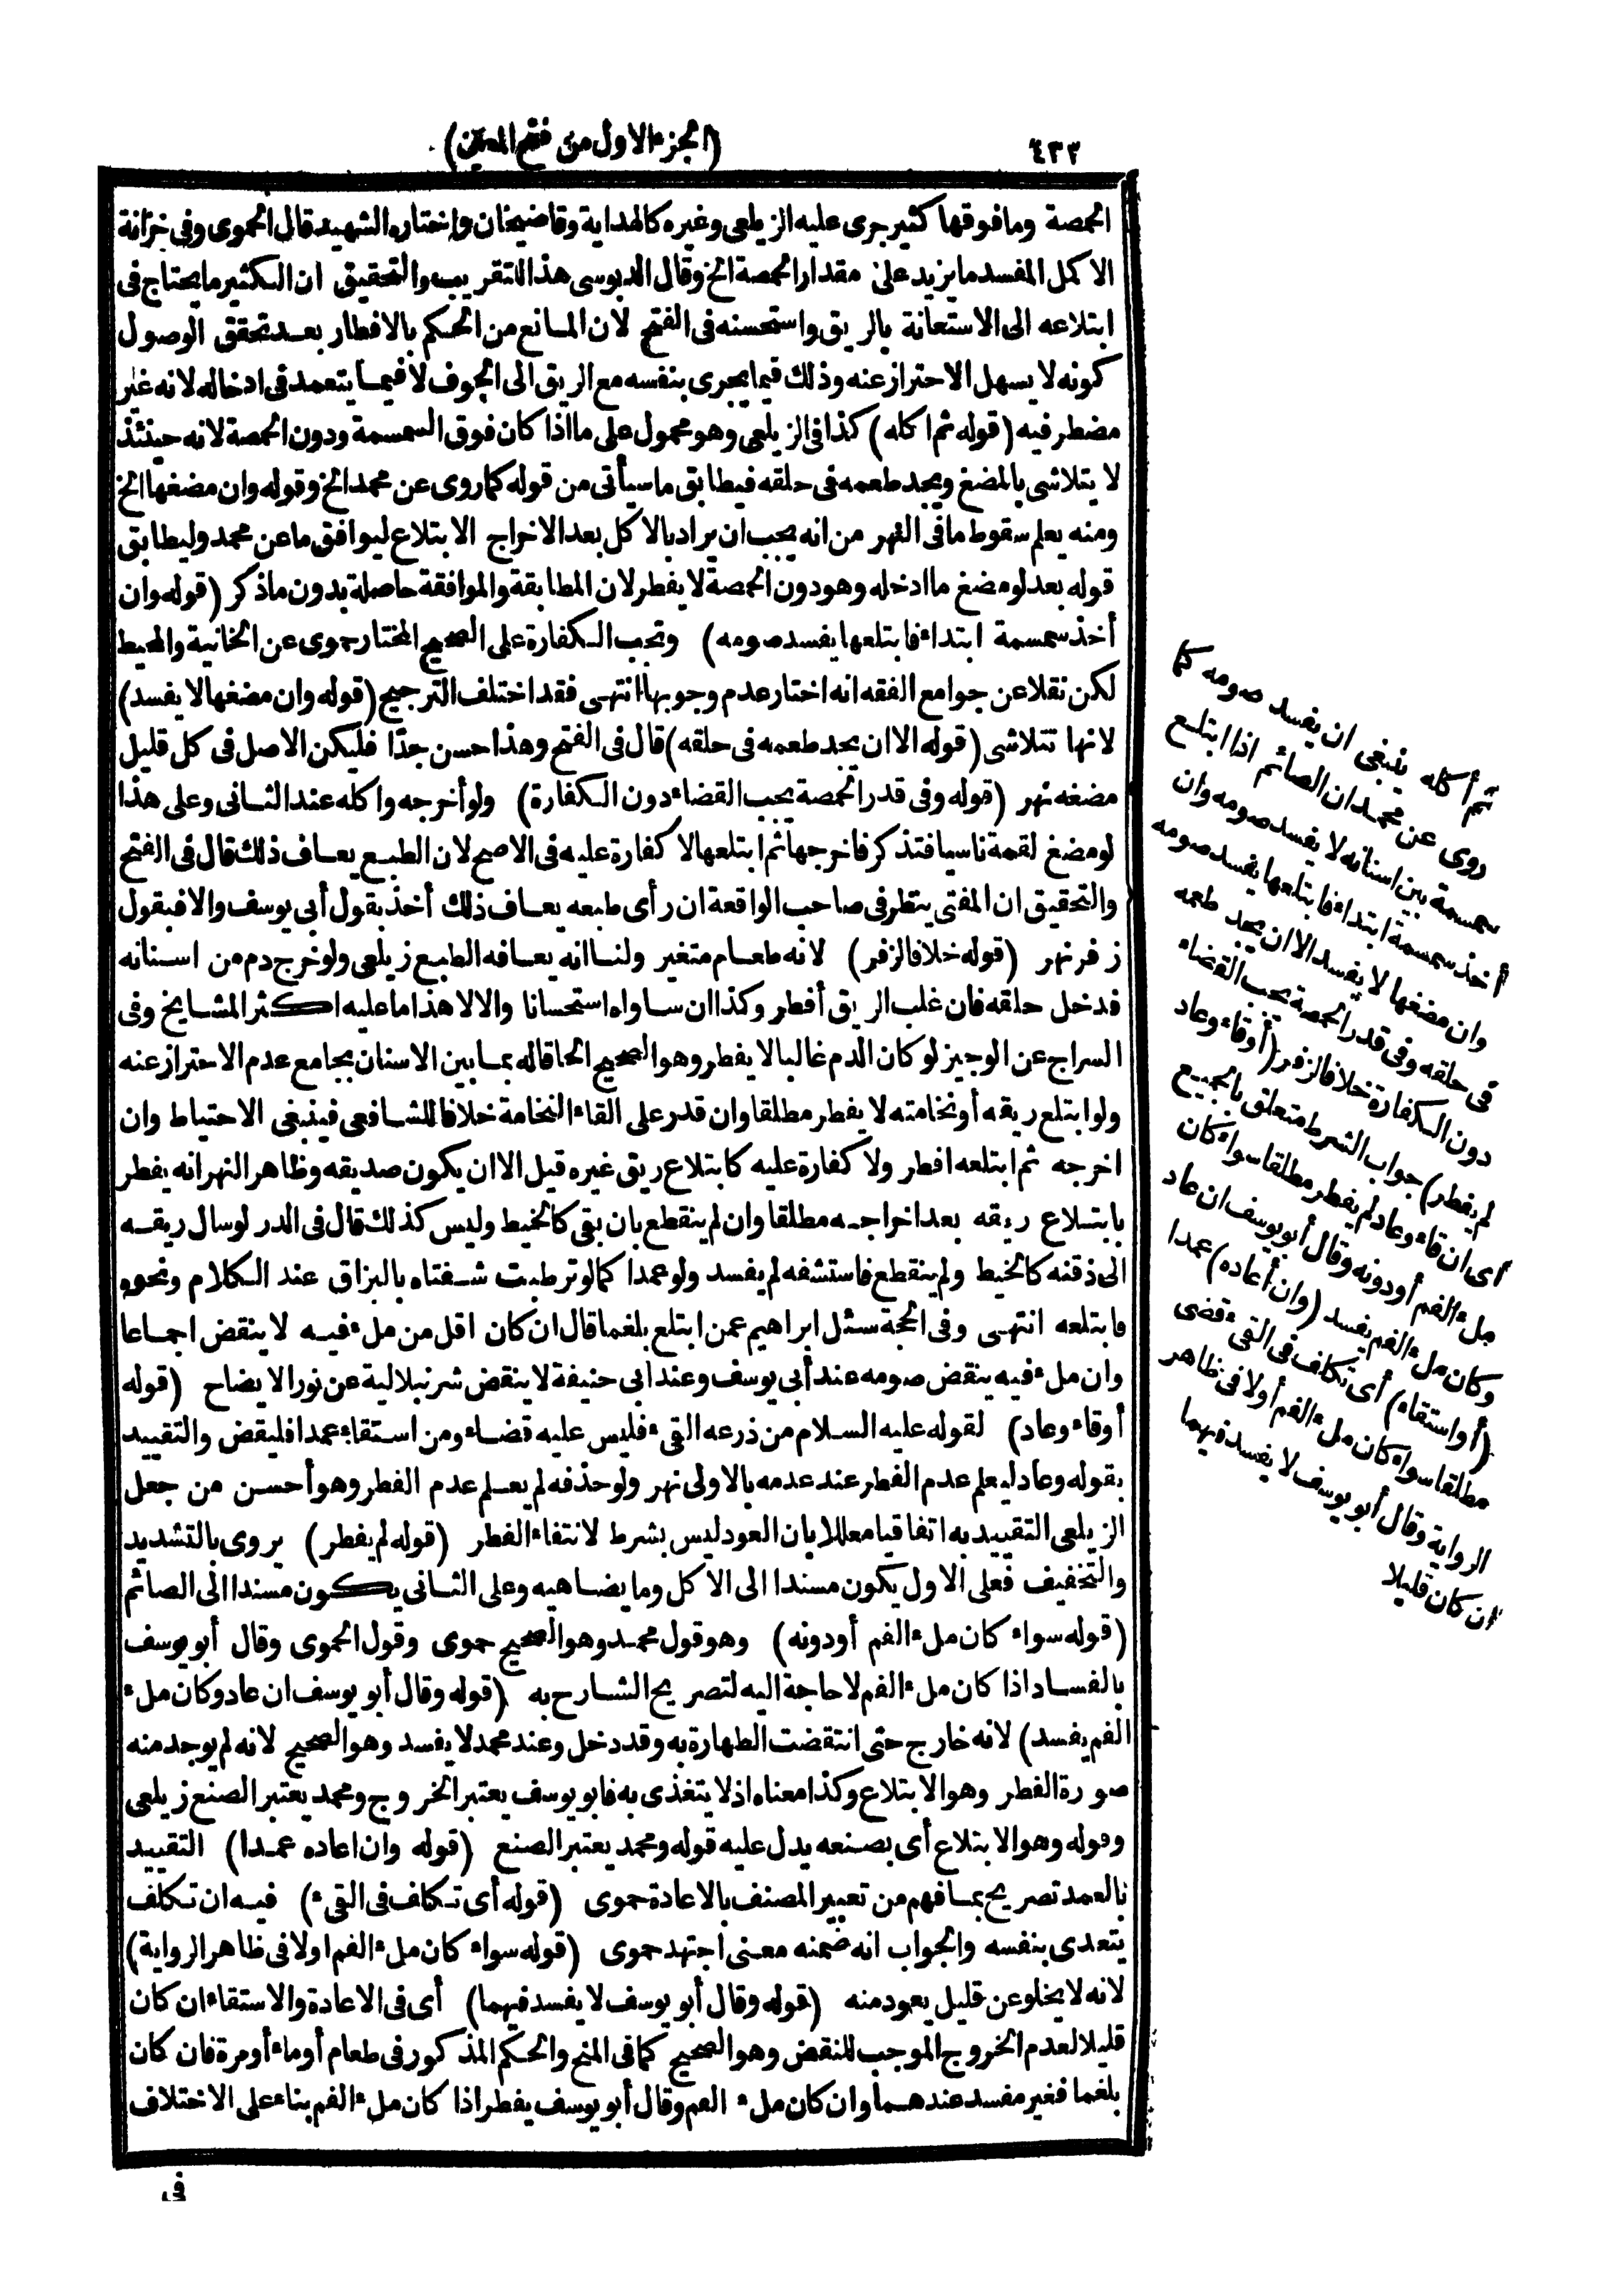 ٤٣٢
(الجزء الاول من فتح المعين)
الحمصة وما فوقها كثير جرى عليه الزيلعى وغيره كالهداية وقاضيخان واختاره الشهيد قال الحموى وفى خزانة
الاكمل المفسد ما يزيد على مقدار الحمصة الخ وقال الدبوسى هذا للتقريب والتحقيق ان الكثير ما يحتاج فى
ابتلاعه الى الاستعانة بالريق واستحسنه فى الفتح لان المانع من الحكم بالافطار بعد تحقق الوصول
كونه لا يسهل الاحتراز عنه وذلك فيما يجرى بنفسه مع الريق الى الجوف لا فيما يتعمد فى ادخاله لانه غير
مضطر فيه (قوله ثم اكله) كذا فى الزيلعى وهو محمول على ما اذا كان فوق السمسمة ودون الحمصة لانه حينئذ
لا يتلاشى بالمضغ ويجد طعمه فى حلقه فيطابق ما سيأتى من قوله كما روى عن محمد الخ وقوله وان مضغها الخ
ومنه يعلم سقوط ما فى النهر من انه يجب ان يراد بالاكل بعد الاخراج الابتلاع ليوافق ما عن محمد وليطابق
قوله بعد لو مضغ ما ادخله وهو دون الحمصة لا يفطر لان المطابقة والموافقة حاصلة بدون ما ذكر (قوله وان
أخذ سمسمة ابتداء فابتلعها يفسد صومه) وتجب الكفارة على الصحيح المختار حموى عن الخانية والمحيط
لكن نقلا عن جوامع الفقه انه اختار عدم وجوبها انتهى فقد اختلف الترجيح (قوله وان مضغها لا يفسد)
لانها تتلاشى (قوله الا ان يجد طعمه فى حلقه) قال فى الفتح وهذا حسن جدّا فليكن الاصل فى كل قليل
مضغه نهر (قوله وفى قدر الحمصة يجب القضاء دون الكفارة) ولو أخرجه واكله عند الثانى وعلى هذا
لو مضغ لقمة ناسيا فتذكر فاخرجها ثم ابتلعها لا كفارة عليه فى الاصح لان الطبع يعاف ذلك قال فى الفتح
والتحقيق ان المفتى ينظر فى صاحب الواقعة ان رأى طبعه يعاف ذلك أخذ بقول أبى يوسف والا فبقول
زفر نهر (قوله خلافا لزفر) لانه طعام متغير ولنا انه يعافه الطبع زيلعى ولو خرج دم من اسنانه
فدخل حلقه فان غلب الريق أفطر وكذا ان ساواه استحسانا والا لا هذا ما عليه اكثر المشايخ وفى
السراج عن الوجيز لو كان الدم غالبا لا يفطر وهو الصحيح الحاقا له بما بين الاسنان بجامع عدم الاحتراز عنه
ولو ابتلع ريقه أو نخامته لا يفطر مطلقا وان قدر على القاء النخامة خلافا للشافعى فينبغى الاحتياط وان
اخرجه ثم ابتلعه افطر ولا كفارة عليه كابتلاع ريق غيره قيل الا ان يكون صديقه وظاهر النهر انه يفطر
بابتلاع ريقه بعد اخراجه مطلقا وان لم ينقطع بان بقى كالخيط وليس كذلك قال فى الدر لو سال ريقه
الى ذقنه كالخيط ولم ينقطع فاستشفه لم يفسد ولو عمدا كما لو ترطبت شفتاه بالبزاق عند الكلام ونحوه
فابتلعه انتهى وفى الحجة سئل ابراهيم عمن ابتلع بلغما قال ان كان اقل من ملء فيه لا ينقض اجماعا
وان ملء فيه ينقض صومه عند أبى يوسف وعند ابى حنيفة لا ينقض شرنبلالية عن نور الايضاح (قوله
أو قاء وعاد) لقوله عليه السلام من ذرعه القىء فليس عليه قضاء ومن استقاء عمدا فليقض والتقييد
بقوله وعاد ليعلم عدم الفطر عند عدمه بالاولى نهر ولو حذفه لم يعلم عدم الفطر وهو أحسن من جعل
الزيلعى التقييد به اتفاقيا معللا بان العود ليس بشرط لانتفاء الفطر (قوله لم يفطر) يروى بالتشديد
والتخفيف فعلى الاول يكون مسندا الى الاكل وما يضاهيه وعلى الثانى يكون مسندا الى الصائم
(قوله سواء كان ملء الفم أو دونه) وهو قول محمد وهو الصحيح حموى وقول الحموى وقال أبو يوسف
بالفساد اذا كان ملء الفم لا حاجة اليه لتصريح الشارح به (قوله وقال أبو يوسف ان عاد وكان ملء
الفم يفسد) لانه خارج حتى انتقضت الطهارة به وقد دخل وعند محمد لا يفسد وهو الصحيح لانه لم يوجد منه
صورة الفطر وهو الابتلاع وكذا معناه اذ لا يتغذى به فابو يوسف يعتبر الخروج ومحمد يعتبر الصنع زيلعى
وقوله وهو الابتلاع أى بصنعه يدل عليه قوله ومحمد يعتبر الصنع (قوله وان اعاده عمدا) التقييد
بالعمد تصريح بما فهم من تعبير المصنف بالاعادة حموى (قوله أى تكلف فى القىء) فيه ان تكلف
يتعدى بنفسه والجواب انه ضمنه معنى اجتهد حموى (قوله سواء كان ملء الفم اولا فى ظاهر الرواية)
لانه لا يخلو عن قليل يعود منه (قوله وقال أبو يوسف لا يفسد فيهما) أى فى الاعادة والاستقاء ان كان
قليلا لعدم الخروج الموجب للنقض وهو الصحيح كما فى المنح والحكم المذكور فى طعام أو ماء أو مرة فان كان
بلغما فغير مفسد عندهما وان كان ملء الفم وقال أبو يوسف يفطر اذا كان ملء الفم بناء على الاختلاف
فى
ثم أكله ينبغى ان يفسد صومه كما
روى عن محمد ان الصائم اذا ابتلع
سمسمة بين اسنانه لا يفسد صومه وان
أخذ سمسمة ابتداء فابتلعها يفسد صومه
وان مضغها لا يفسد الا ان يجد طعمه
فى حلقه وفى قدر الحمصة يجب القضاء
دون الكفارة خلافا لزفر (أو قاء وعاد
لم يفطر) جواب الشرط متعلق بالجميع
أى ان قاء وعاد لم يفطر مطلقا سواء كان
ملء الفم أو دونه وقال أبو يوسف ان عاد
وكان ملء الفم يفسد (وان أعاده) عمدا
(أو استقاء) أى تكلف فى القىء قضى
مطلقا سواء كان ملء الفم أولا فى ظاهر
الرواية وقال أبو يوسف لا يفسد فيهما
ان كان قليلا